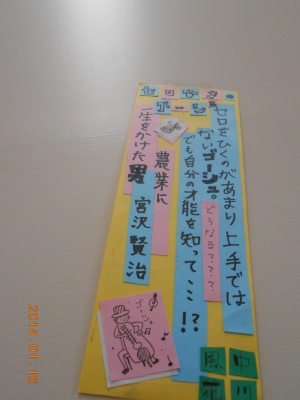 セロひきの
ゴーシュ
セロをひくのがあまり上手では
ないゴーシュ。どうなる???
でも自分の才能を知って!?
農業に
一生をかけた男 宮沢賢治
中川